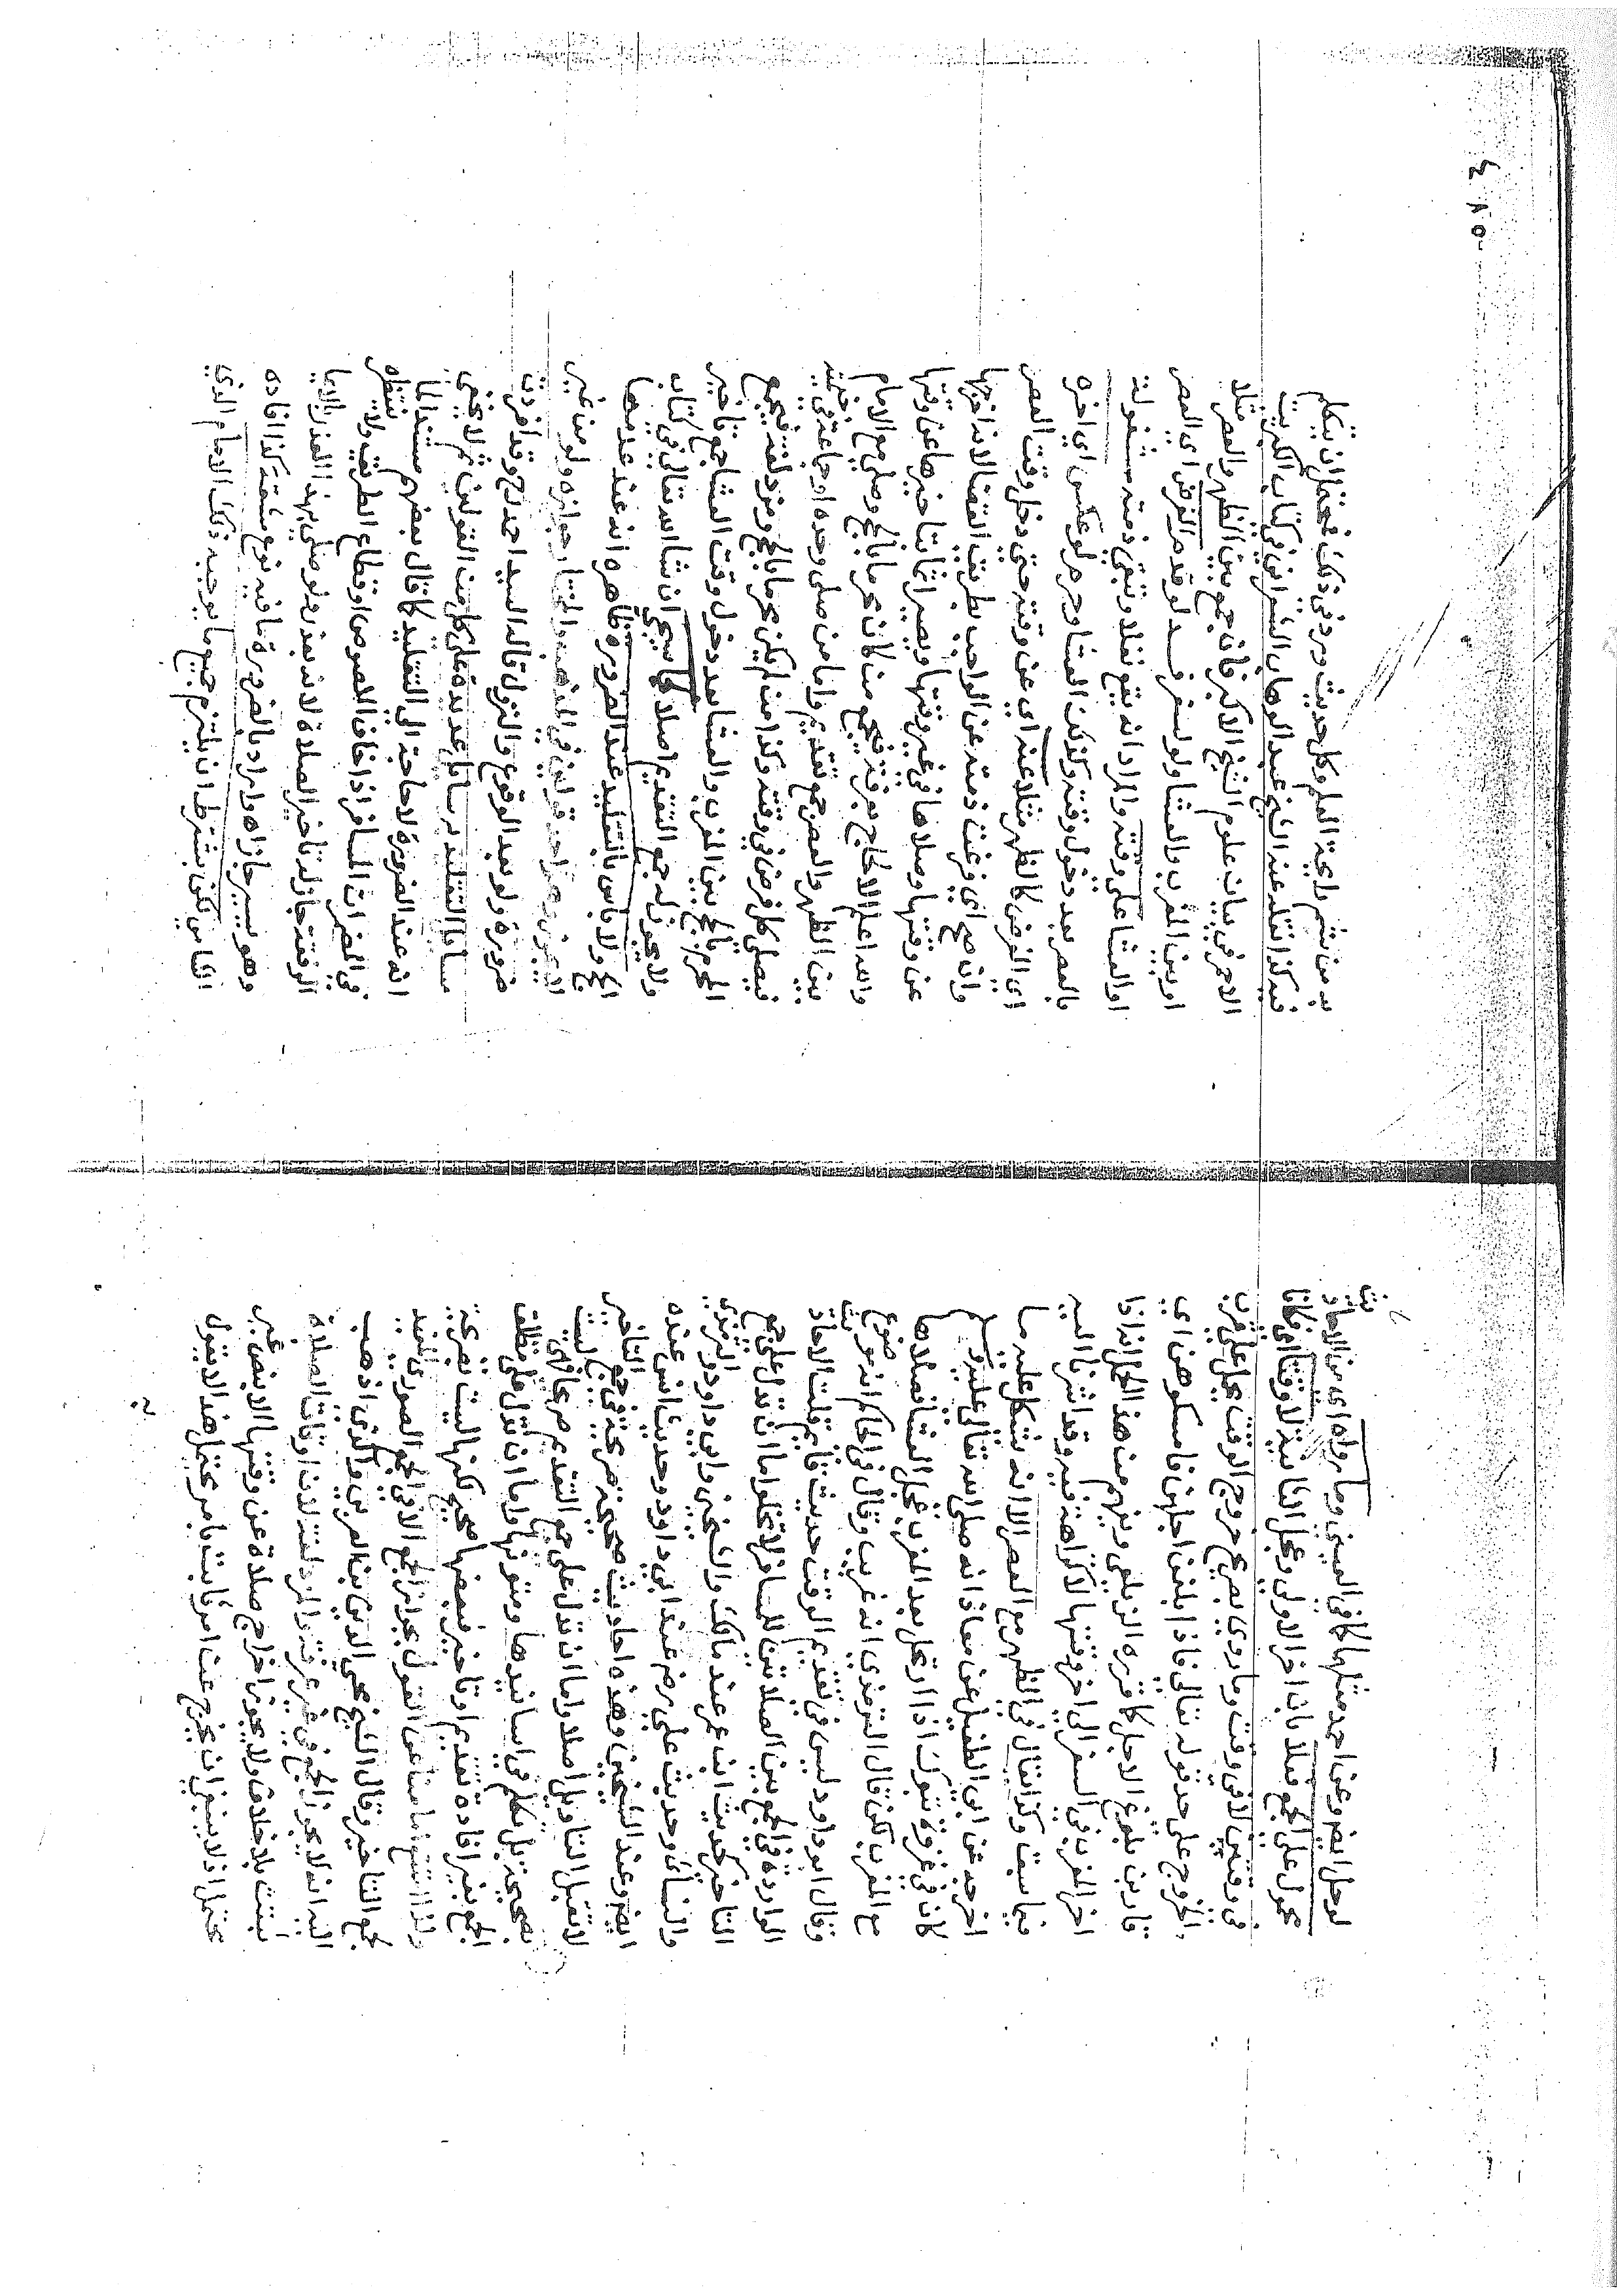 لوحل ايضا وعن احد مثلها كما في العيني وما رواه اي من الاحاديث
محمول على الجمع فعلا بان اخر الاولى وعجل الثانية لا وقتا اي فكانا
في وقتين لا في وقت وما روي بصريح خروج الوقت محمول على قرب
الخروج على حد قوله تعالى فاذا بلغن اجلهن فامسكوهن اي
قاربن بلوغ الاجل كما قرره الزيلعي وغيرهم من هذا المحل انداذا
اخر المغرب في السفر الى اخر وقتها لا كراهة فيه وقد اشرنا اليه
فيما سبق وكذا يقال في الظهر مع العصر الا انه يشكل عليه ما
اخرجه عن ابي الطفيل عن معاذ انه صلى الله تعالى عليه وسلم
كان في غزوة تبوك اذا ارتحل بعد المغرب عجل العشا فصلاها
مع المغرب لكن قال الترمذي انه غريب وقال الحاكم انه موضوع
وقال ابو داود وليس في تقديم الوقت حديث قائم قلت الاحاديث
الواردة في الجمع بين الصلاتين للمسافر لا تخلوا اما ان تدل على جمع
التاخير كحديث ابن عمر عند مالك والشيخين وابي داود والترمذي
والنسائي وحديث علي رضي عند ابي داود وحديث انس عنده
ايضا وعند الشيخين وهذه احاديث صحيحة صريحة في جمع التاخير
لا تقبل التاويل اصلا واما ان تدل على جمع التقديم صريحا وهي ليست
بصحيحة بل تكلم في اسانيدها ومتونها واما ان تدل على مطلق
الجمع بغير افادة تقديم او تاخير فبعضها صحيح لكنها ليست بصريحة
ولذا امتنع مامتنا عن القول بجواز الجمع الا في الجمع الصوري المفيد
لجمع التاخير وقال الشيخ محي الدين بن العربي والذي اذهب
اليه انه لا يجوز الجمع في غير عرفة والمزدلفة لان اوقات الصلاة
تثبت بلا خلاف ولا يجوز اخراج صلاة عن وقتها الا بنص غير
محتمل اذ لا ينبغي ان يخرج عن امر ثابت بامر محتمل هذا لا يقول
به من شم رايحة العلم وكل حديث ورد في ذلك فمحتمل ان يتكلم
فيه كذا نقله عنه الشيخ عبد الوهاب الشعراني في كتاب الكبريت
الاحمر في بيان علوم الشيخ الاكبر فان جمع بين الظهر والعصر مثلا
او بين المغرب والعشا ولو لسفر فسد لو قدم الفرض اي العصر
او العشا على وقته والمراد انه يقع نفلا وتبقى ذمته مشغولة
بالعصر بعد دخول وقته وكذلك العشا وحرم لو عكس اي اخره
اي الفرض كالظهر مثلا عنه اي عن وقته حتى دخل وقت العصر
وان صح اي فرغت ذمته عن الواجب بطريق القضا لانه اخرجها
عن وقتها وصلاها في غير وقتها ويصير اثما بتاخيرها عن وقتها
والله اعلم الا لحاج بعرفة فيجمع من كان محرما بالحج وصلى مع الامام
بين الظهر والعصر جمع تقديم واما من صلى وحده او جماعة في خيمته
فيصلي كل فرض في وقته وكذا من لم يكن محرما بالحج ومزدلفة فيجمع
المحرم بالحج بين المغرب والعشا بعد دخول وقت العشا جمع تاخير
ولا يجوز له جمع التقديم اصلا كما سيجئ ان شا الله تعالى في كتاب
الحج ولا باس بالتقليد عند الضرورة ظاهره انه عند عدمها
لا يجوز وهو احد قولين في المذهب والمختار جوازه ولو من غير
ضرورة ولو بعد الوقوع والنزول قاله السيد احمد رح وقد افردت
مسايل التقليد برسايل عديدة على كل من القولين ثم لا يخفى
انه عند الضرورة لا حاجة الى التقليد كما قال بعضهم مستندا لما
في المضمرات المسافر اذا خاف اللصوص او قطاع الطريق ولا ينتظره
الرفقة جاز له تاخير الصلاة لانه بعذر ولو صلى بهذا العذر بالايماء
وهو يسير جاز اه ولعل المراد بالضرورة ما فيه نوع مشقة كذا افاده
الشامي لكن بشرط ان يلتزم جميع ما يوجبه ذلك الامام الذي